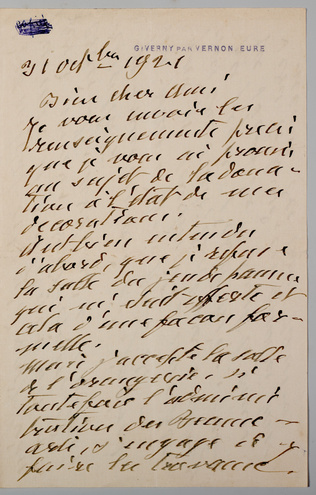 GIVERNY PAR VERNON, EURE
31 octbre 1921
Bien cher ami
Je vous envoie les
renseignements preci
que je vous ai promis
au sujet de la dona-
tion à l'état de mes
décorations.
Il est bien entendu
d'abord, que je refuse
la salle du jeu de paume
qui m'était offerte et
cela d'une façon for-
melle.
Mais j'accepte la salle
de l'orangerie, si
toutefois l'adminis
tration des Beaux-
arts, s'engage à y
faire les travaux